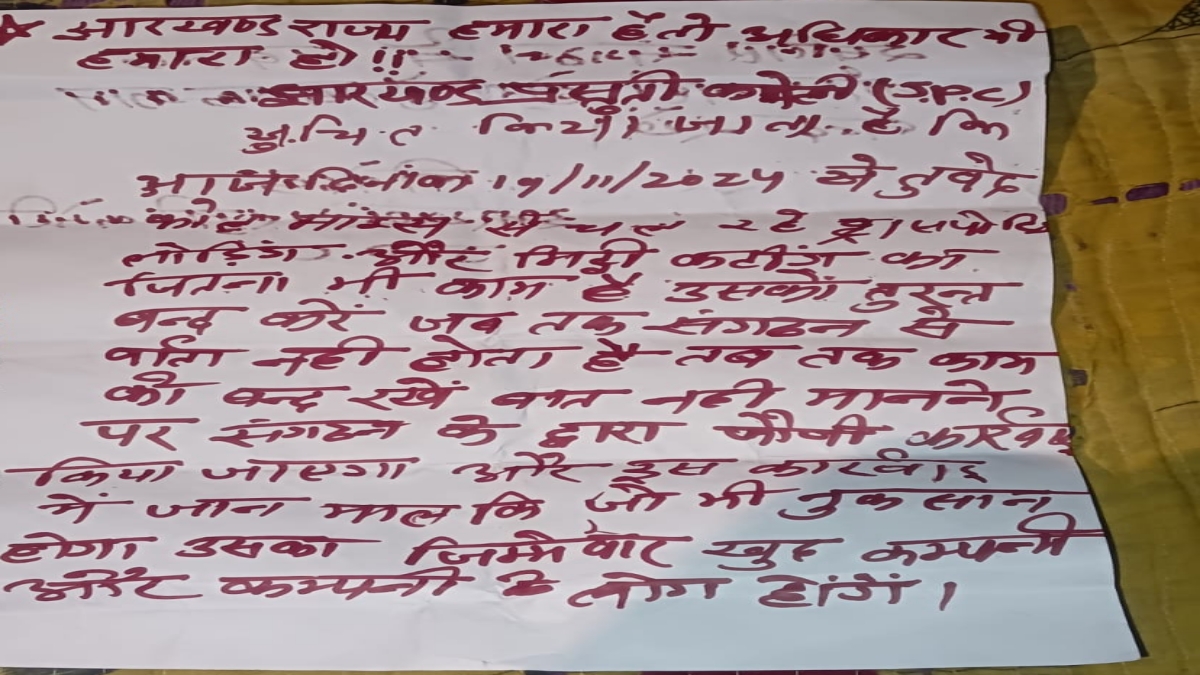 ★ झारखण्ड राज्य हमारा है तो अधिकार भी
हमारा हो !!
झारखंड प्रस्तुती कमेटी (J.P.C)
सुचित किया जाता है कि
आज दिनांक 19/11/2025 से
कोल माइन्स सी चल रहे ट्रांसपोर्टिंग
लोडिंग और मिट्टी कटींग का
जितना भी काम है उसको तुरन्त
बन्द करें जब तक संगठन से
र्वाता नही होता है तब तक काम
को बन्द रखें बात नही मानने
पर संगठन के द्वारा फौजी
किया जाएगा और इस कारवाई
में जान माल कि जो भी नुकसान
होगा उसका जिम्मेवार खुद कम्पनी
और कम्पनी के लोग होंगें ।